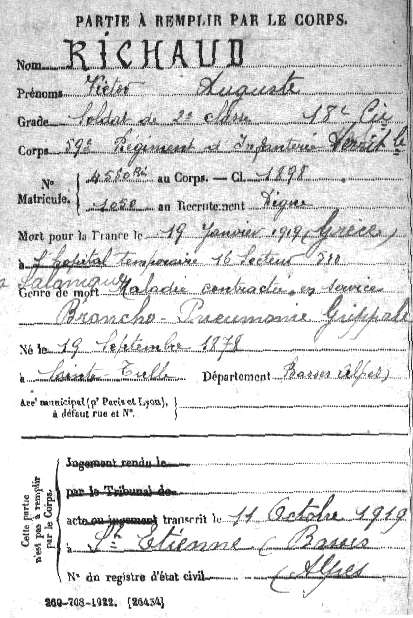 PARTIE À REMPLIR PAR LE CORPS.
Nom RICHAUD
Prénoms Victor Auguste
Grade Soldat de 2e classe 18e Cie
Corps 59e Régiment d'Infanterie
N° Matricule. 4560 au Corps. — Cl. 1898
1050 au Recrutement Digne
Mort pour la France le 19 Janvier 1919 (Grèce)
à l'hôpital temporaire 16 Secteur 510
Salonique
Genre de mort Maladie contractée en service
Broncho-Pneumonie Grippale
Né le 19 Septembre 1878
à Sainte-Tulle Département Basses Alpes)
Arrt municipal (pr Paris et Lyon),
à défaut rue et N°.
Cette partie
n'est pas à remplir
par le Corps.
Jugement rendu le
par le Tribunal de
acte ou jugement transcrit le 11 Octobre 1919
à St Etienne (Basses
Alpes)
N° du registre d'état civil
269-708-1922. [26434]